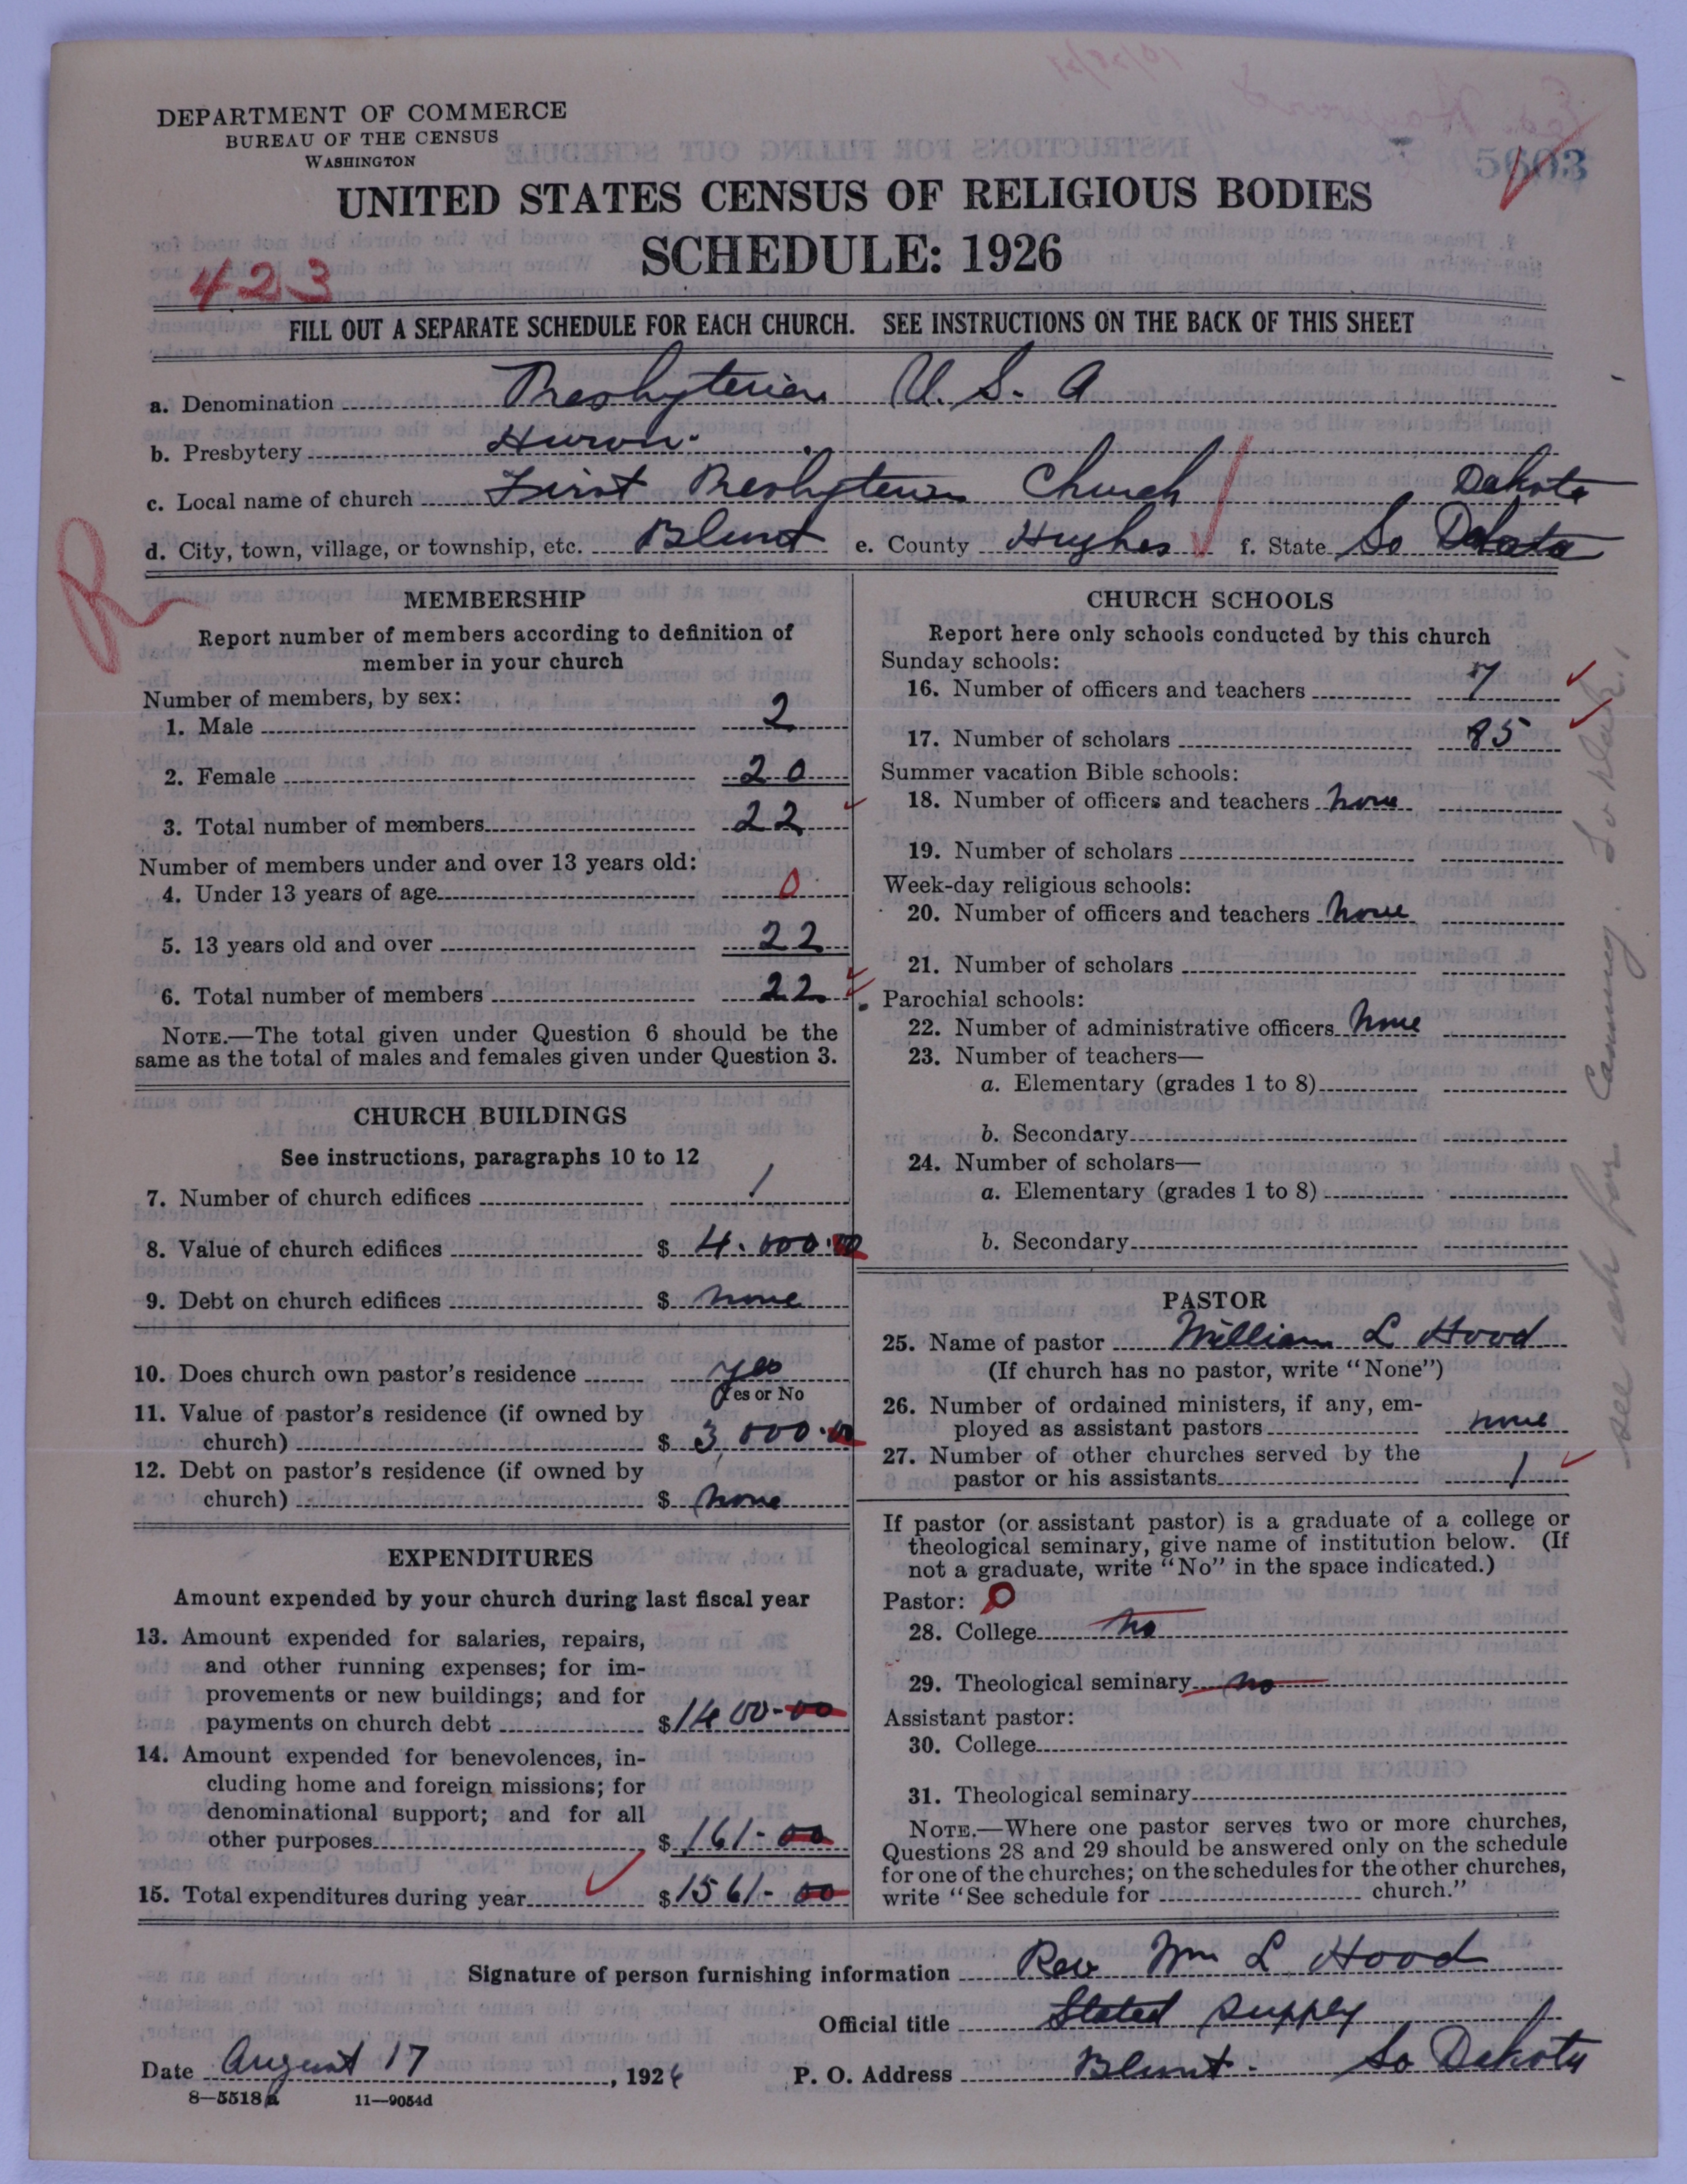 DEPARTMENT OF COMMERCE
BUREAU OF THE CENSUS
WASHINGTON
5603
UNITED STATES CENSUS OF RELIGIOUS BODIES
SCHEDULE: 1926
423
FILL OUT A SEPARATE SCHEDULE FOR EACH CHURCH. SEE INSTRUCTIONS ON THE BACK OF THIS SHEET
a. Denomination Presbyterian U. S. A
b. Presbytery Huron.
c. Local name of church First Presbyterian Church Dakota
d. City, town, village, or township, etc. Blunt e. County Hughes f. State So Dakota
R
MEMBERSHIP
Report number of members according to definition of
member in your church
Number of members, by sex:
1. Male 2
2. Female 20
3. Total number of members 22
Number of members under and over 13 years old:
4. Under 13 years of age 0
5. 13 years old and over 22
6. Total number of members 22
NOTE.—The total given under Question 6 should be the
same as the total of males and females given under Question 3.
CHURCH BUILDINGS
See instructions, paragraphs 10 to 12
7. Number of church edifices 1
8. Value of church edifices $ 4.000.00
9. Debt on church edifices $ none
10. Does church own pastor's residence yes
Yes or No
11. Value of pastor's residence (if owned by
church) $ 3,000.00
12. Debt on pastor's residence (if owned by
church) $ none
EXPENDITURES
Amount expended by your church during last fiscal year
13. Amount expended for salaries, repairs,
and other running expenses; for im-
provements or new buildings; and for
payments on church debt $ 1400-00
14. Amount expended for benevolences, in-
cluding home and foreign missions; for
denominational support; and for all
other purposes $ 161-00
15. Total expenditures during year $ 1561-00
CHURCH SCHOOLS
Report here only schools conducted by this church
Sunday schools:
16. Number of officers and teachers 7
17. Number of scholars 85
Summer vacation Bible schools:
18. Number of officers and teachers none
19. Number of scholars
Week-day religious schools:
20. Number of officers and teachers none
21. Number of scholars
Parochial schools:
22. Number of administrative officers none
23. Number of teachers—
a. Elementary (grades 1 to 8)
b. Secondary
24. Number of scholars—
a. Elementary (grades 1 to 8)
b. Secondary
PASTOR
25. Name of pastor William L Hood
(If church has no pastor, write "None")
26. Number of ordained ministers, if any, em-
ployed as assistant pastors none
27. Number of other churches served by the
pastor or his assistants 1
If pastor (or assistant pastor) is a graduate of a college or
theological seminary, give name of institution below. (If
not a graduate, write "No" in the space indicated.)
Pastor: 0
28. College no
29. Theological seminary no
Assistant pastor:
30. College
31. Theological seminary
NOTE.—Where one pastor serves two or more churches,
Questions 28 and 29 should be answered only on the schedule
for one of the churches; on the schedules for the other churches,
write "See schedule for church."
see sch for Canning. So Dak.
Signature of person furnishing information Rev Wm L Hood
Official title Stated Supply
Date August 17, 1926 P. O. Address Blunt. So Dakota
8—5518a 11—9054d